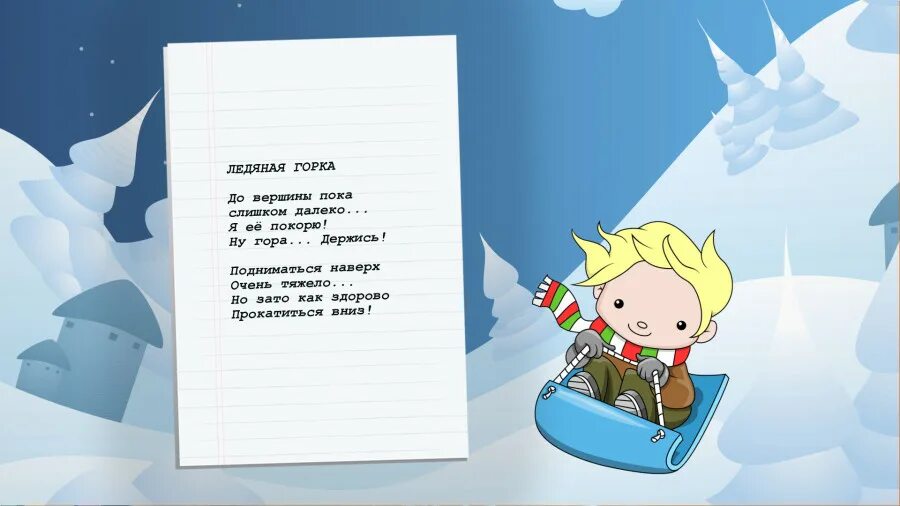 ЛЕДЯНАЯ ГОРКА
До вершины пока
слишком далеко...
Я её покорю!
Ну гора... Держись!
Подниматься наверх
Очень тяжело...
Но зато как здорово
Прокатиться вниз!